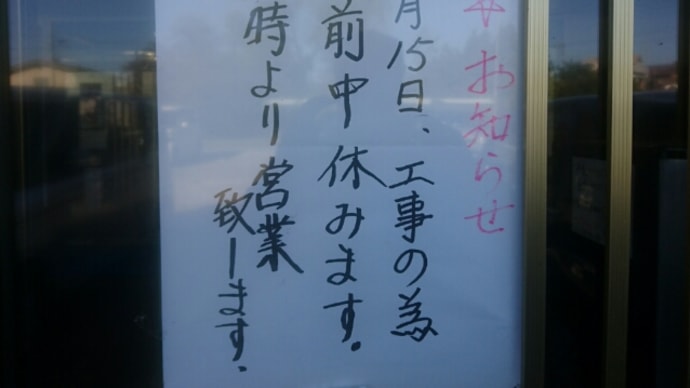 お知らせ
月15日、工事の為
前中休みます。
時より営業
致します。